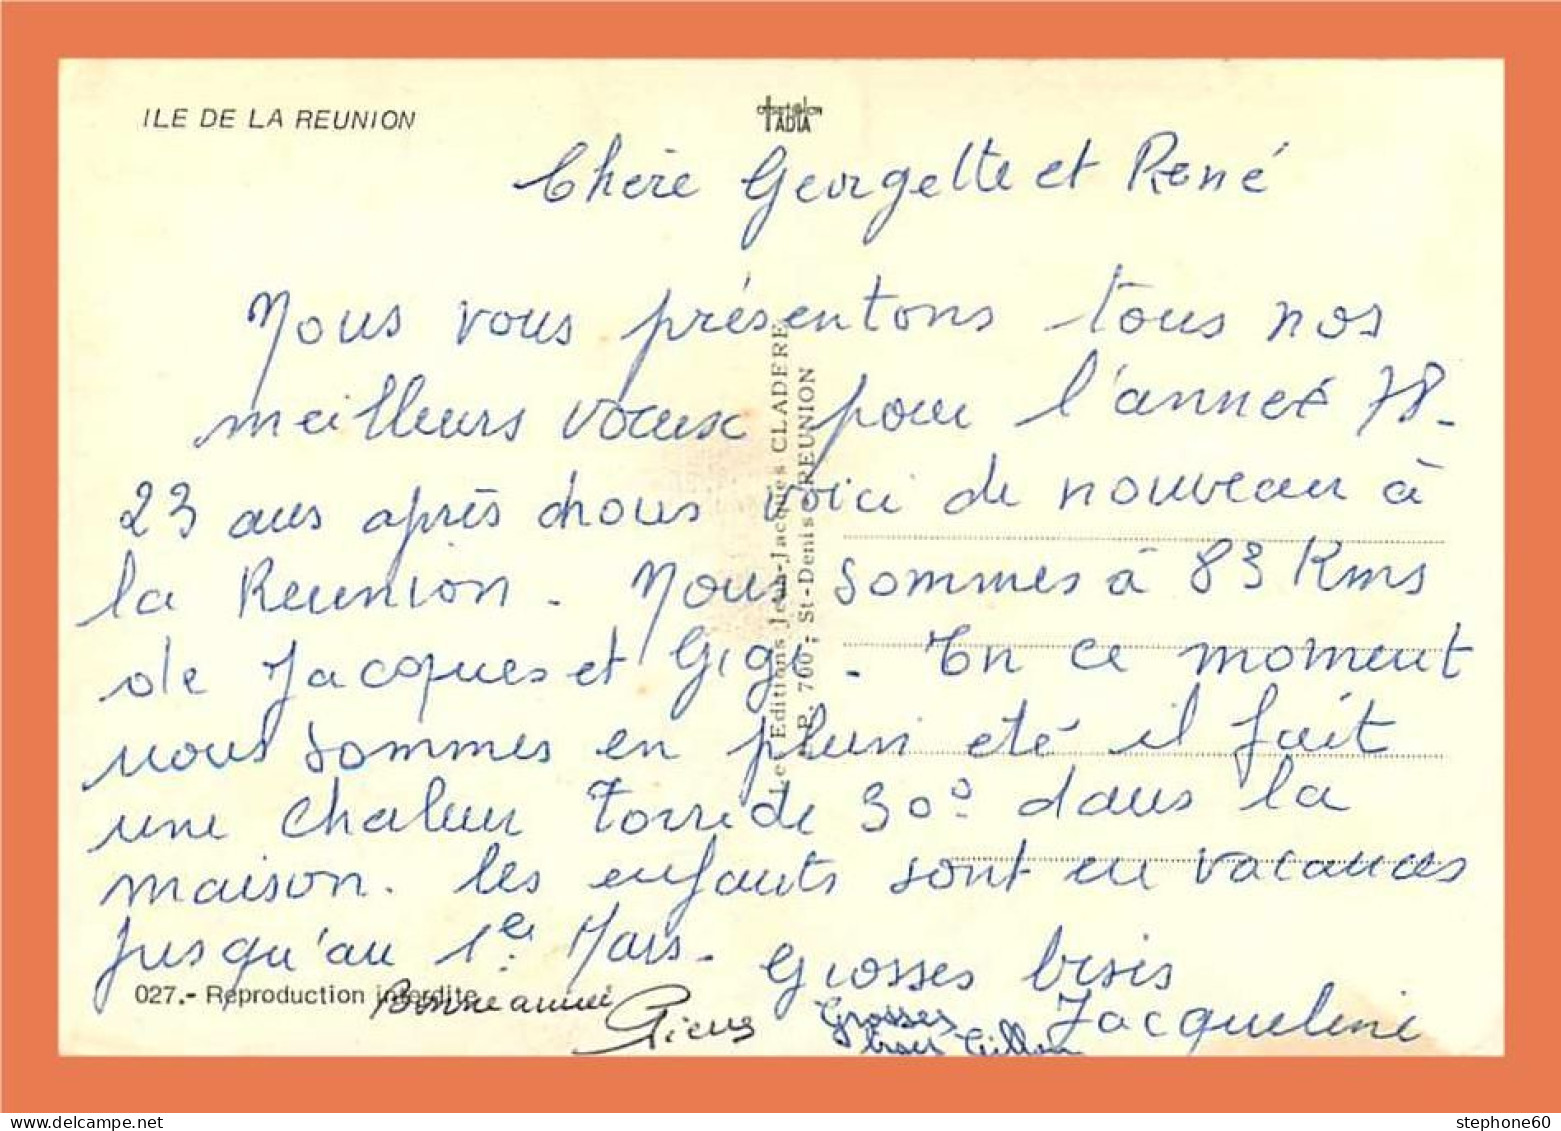 ILE DE LA REUNION
TADIA
Chère Georgette et René
Nous vous présentons tous nos
meilleurs voeux pour l'année 78.
23 ans après nous voici de nouveau à
la Reunion. Nous sommes à 83 Kms
de Jacques et Gigi. En ce moment
nous sommes en plein eté il fait
une chaleur torride 30° dans la
maison. les enfants sont en vacances
jusqu'au 1er Mars. Grosses bises
Jacqueline
Bonne année
Grosses
bises
027.- Reproduction interdite
Les Editions Jean-Jacques CLADERE
B.P. 700 - St-Denis - REUNION
stephone60